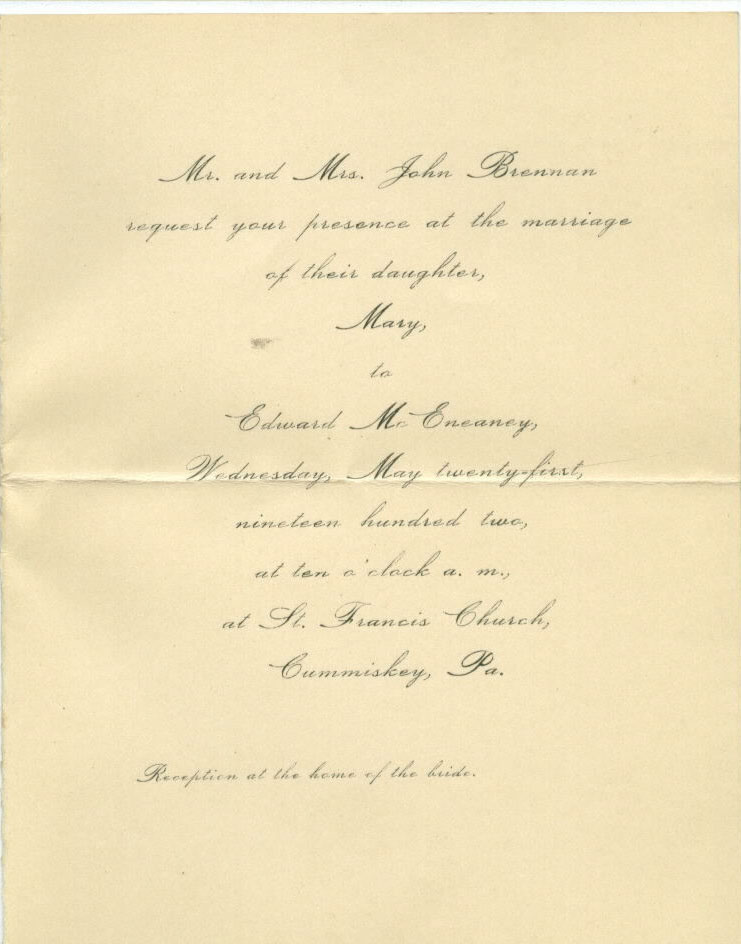 Mr. and Mrs. John Brennan
request your presence at the marriage
of their daughter,
Mary,
to
Edward Mc Eneaney,
Wednesday, May twenty-first,
nineteen hundred two,
at ten o'clock a. m.,
at St. Francis Church,
Cummiskey, Pa.
Reception at the home of the bride.